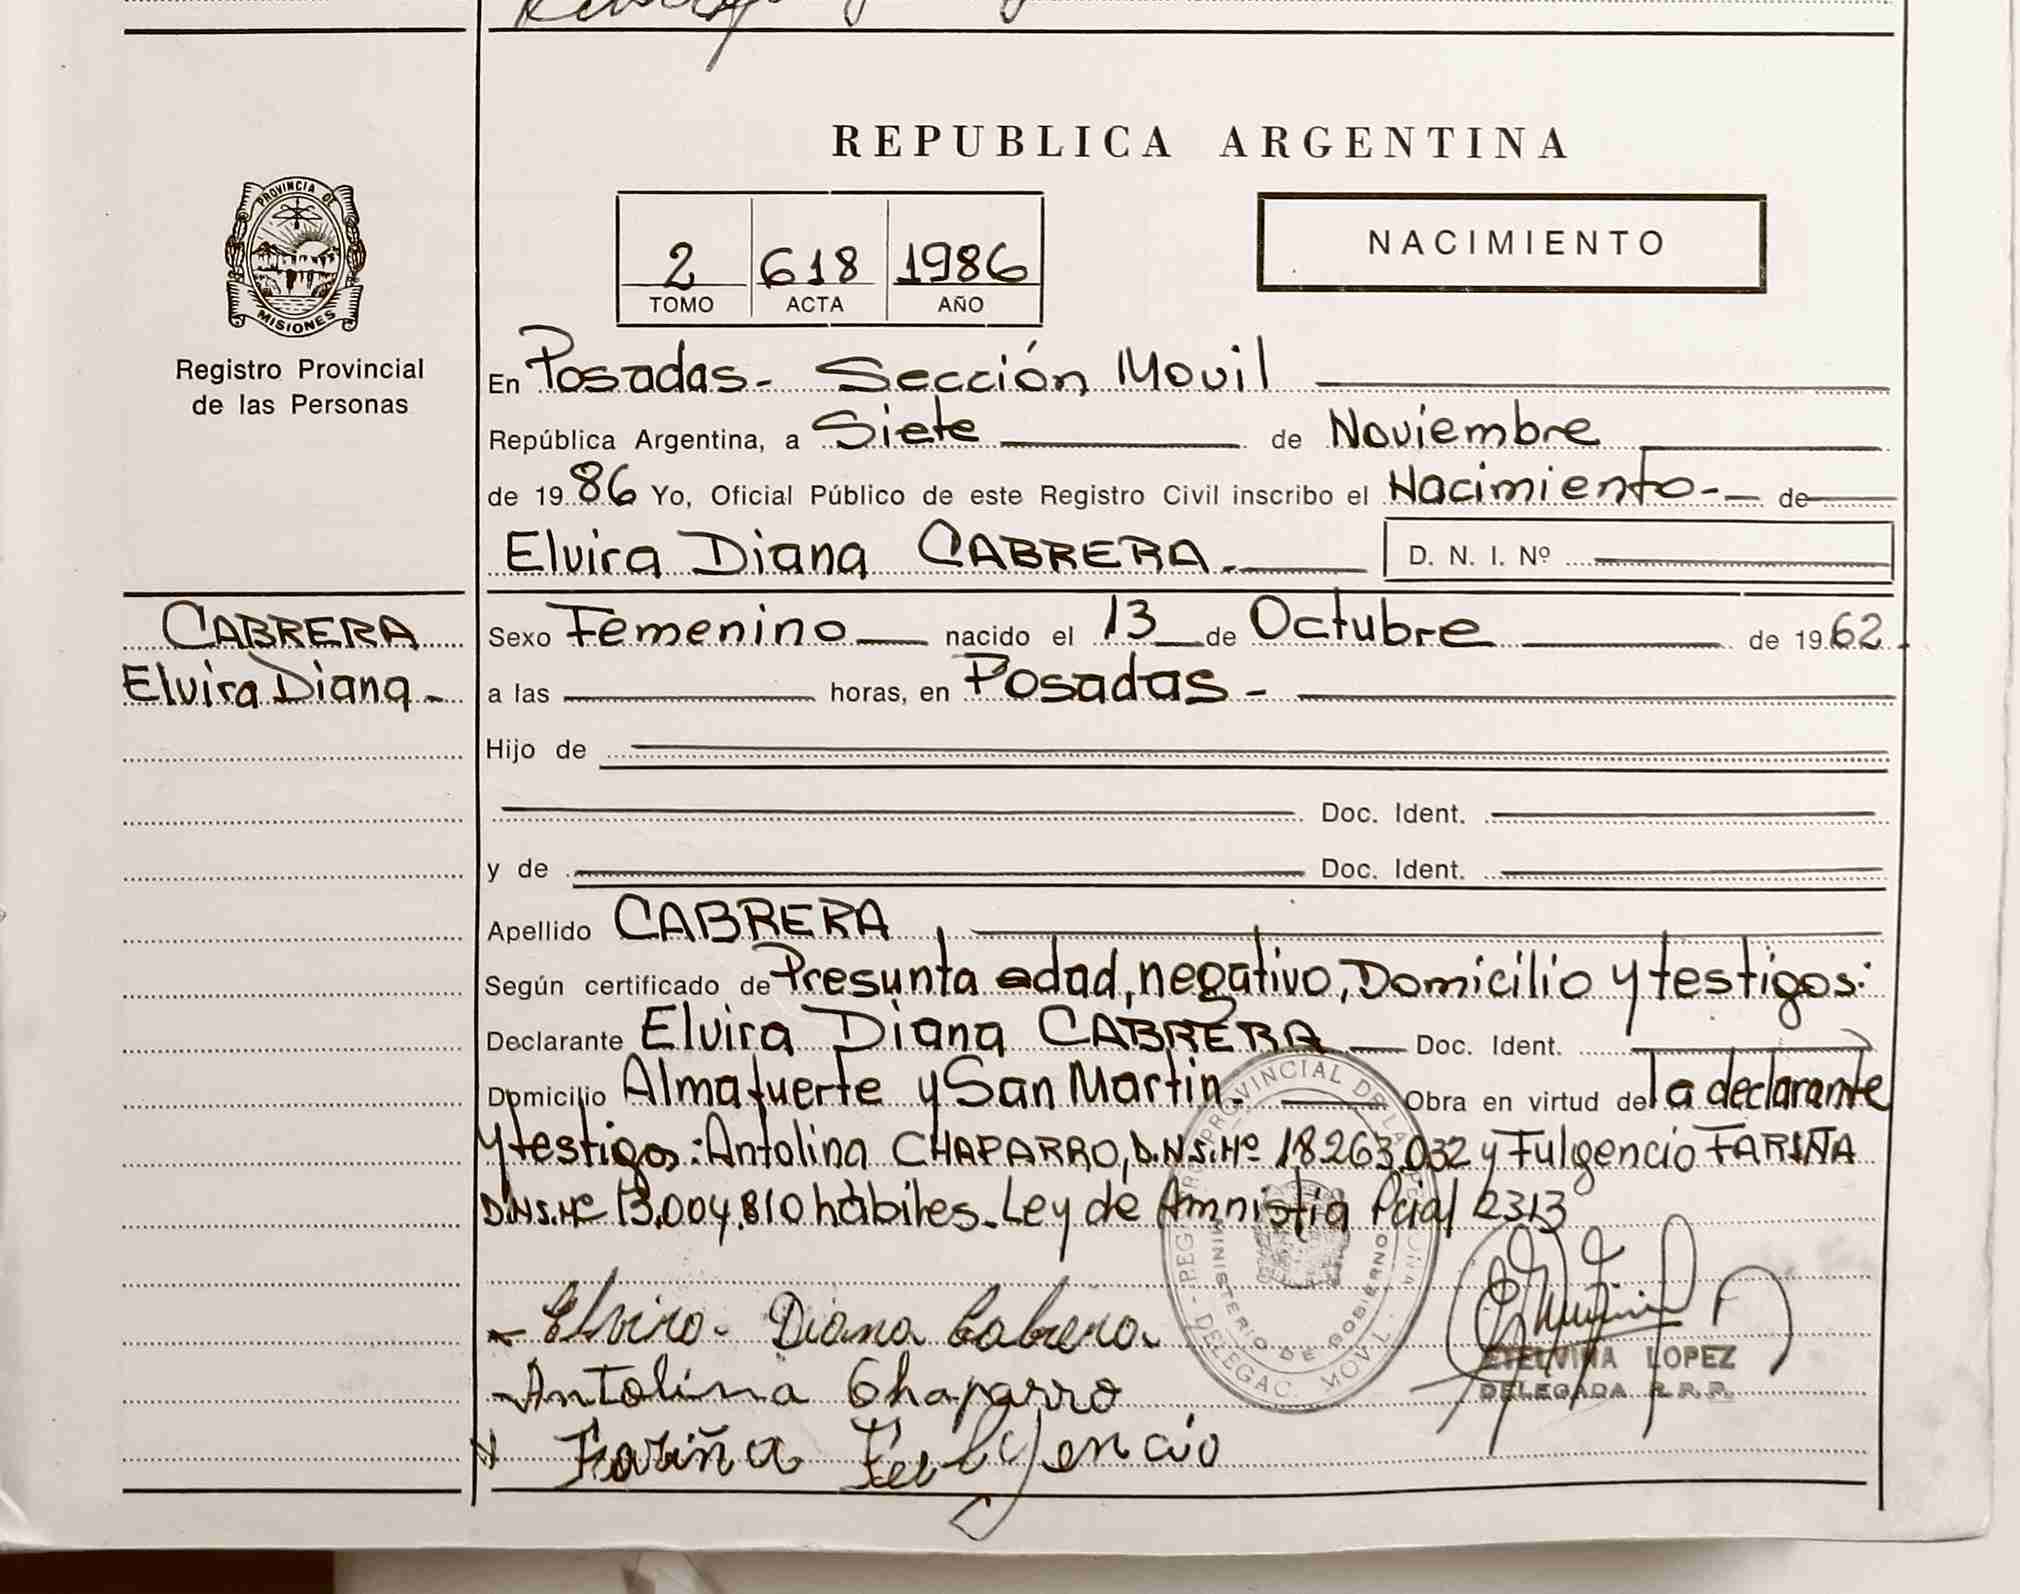 REPUBLICA ARGENTINA
PROVINCIA DE
MISIONES
Registro Provincial
de las Personas
2 618 1986
TOMO ACTA AÑO
NACIMIENTO
En Posadas- Sección Movil
República Argentina, a Siete de Noviembre
de 1986 Yo, Oficial Público de este Registro Civil inscribo el Nacimiento- de
Elvira Diana CABRERA.
D. N. I. Nº
CABRERA
Elvira Diana -
Sexo Femenino nacido el 13 de Octubre de 1962.
a las horas, en Posadas -
Hijo de
Doc. Ident.
y de Doc. Ident.
Apellido CABRERA
Según certificado de Presunta edad, negativo, Domicilio y testigos:
Declarante Elvira Diana CABRERA Doc. Ident.
Domicilio Almafuerte y San Martin. Obra en virtud de la declarante
y testigos: Antolina CHAPARRO, D.N.I.Nº 18263.032 y Fulgencio FARIÑA
D.N.I.Nº 13.004.810 hábiles. Ley de Amnistia Pcial 2313
- Elvira - Diana Cabrera.
- Antolina Chaparro
Fariña Fulgencio
REG. PROVINCIAL DE LAS PERSONAS
MINISTERIO DE GOBIERNO
DELEGAC. MOVIL
ETELVINA LOPEZ
DELEGADA R.P.P.